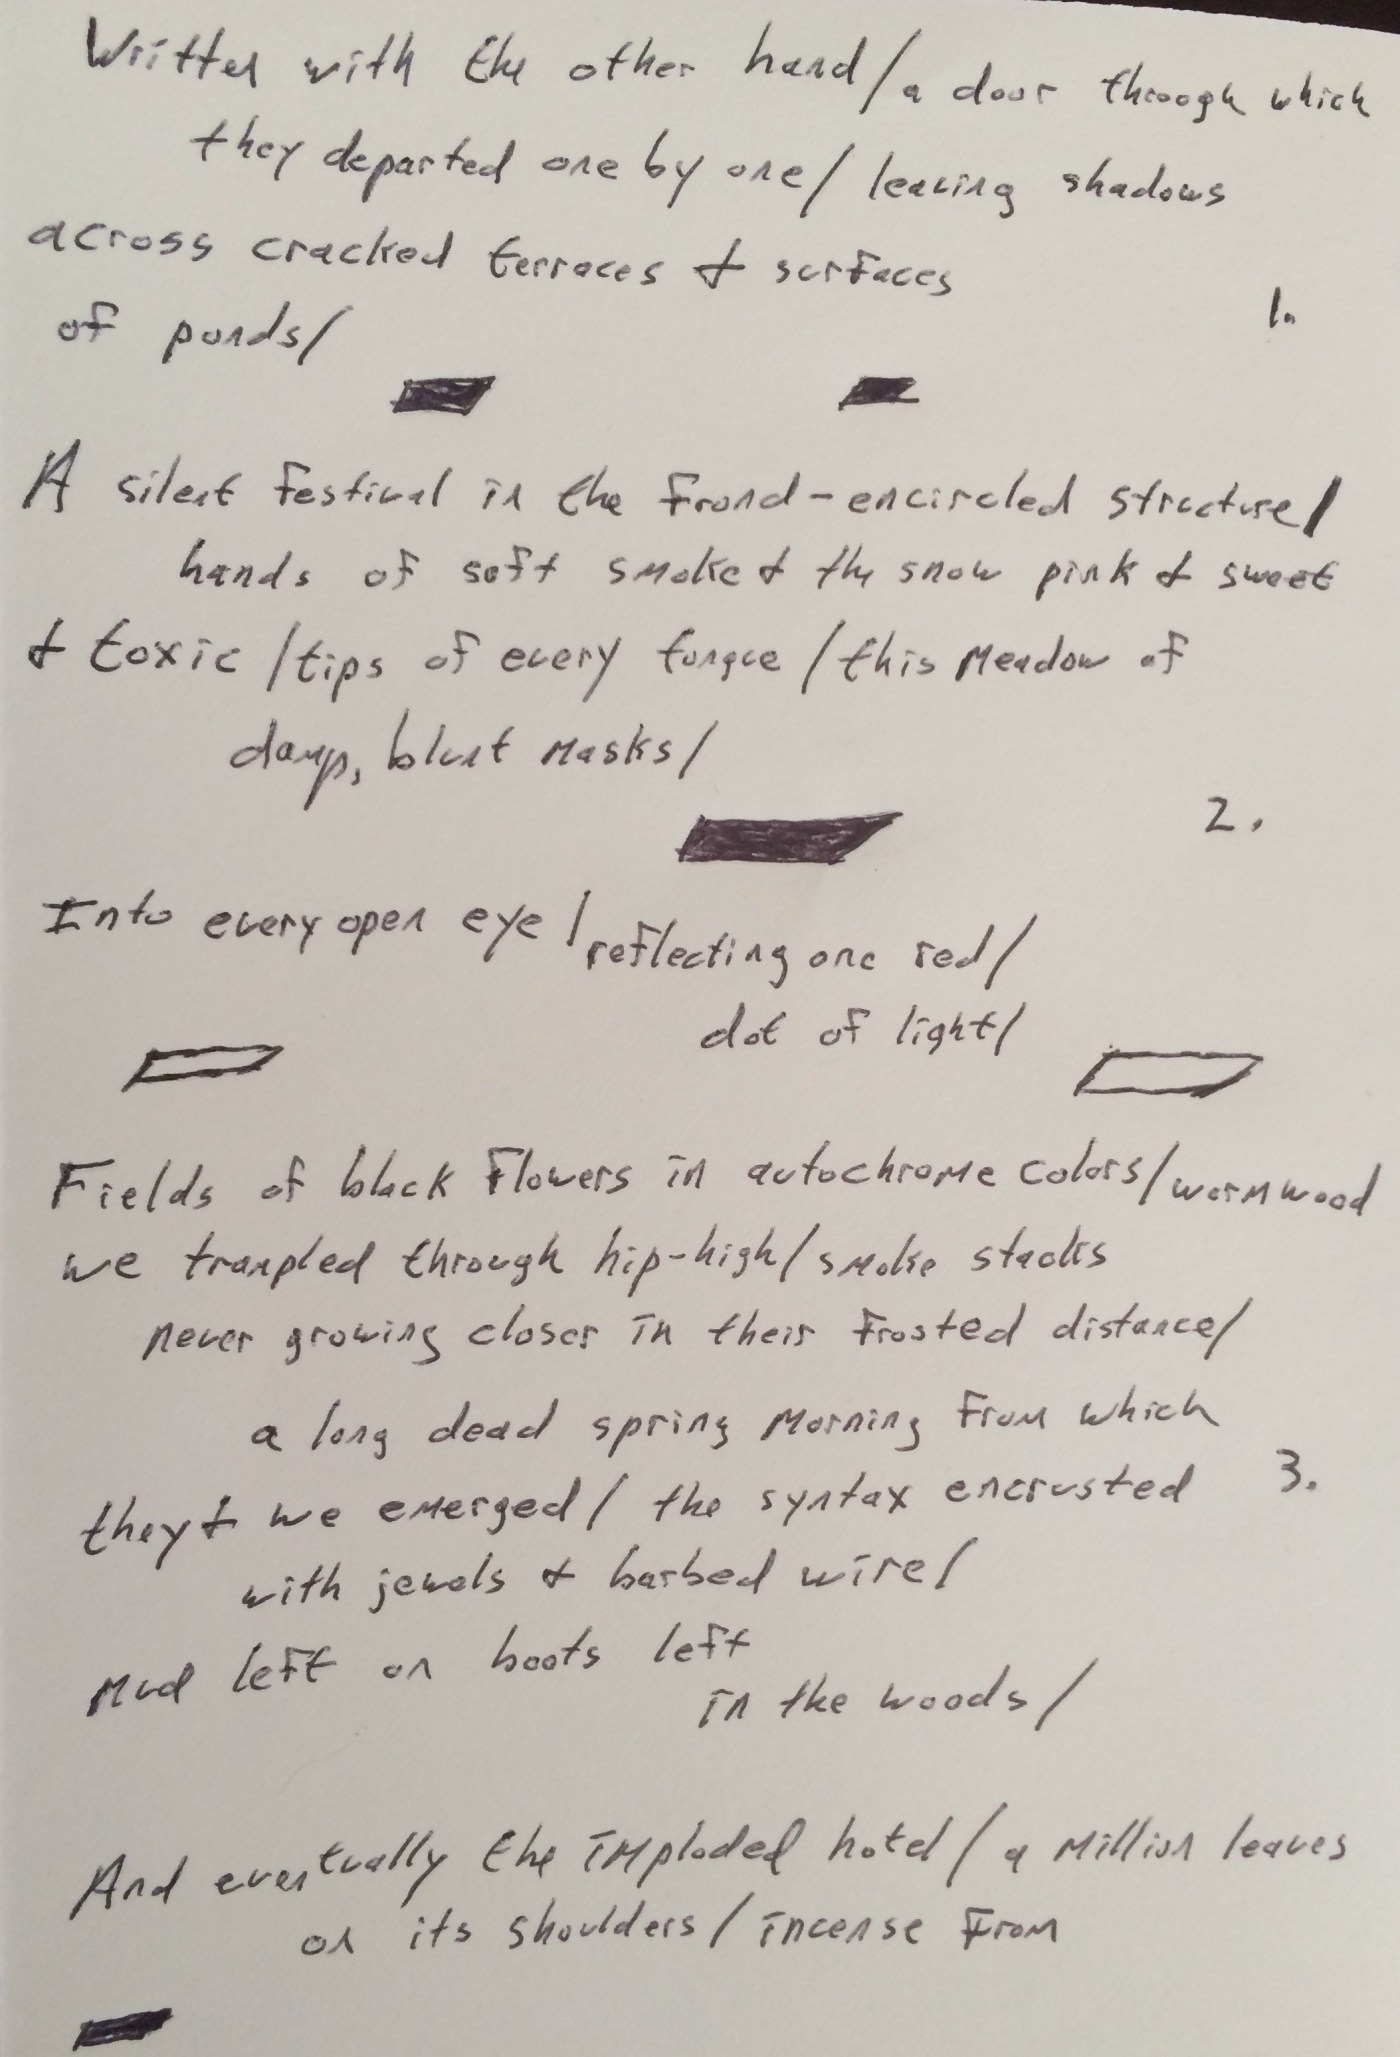 Written with the other hand/a door through which
they departed one by one/ leaving shadows
across cracked terraces & surfaces
of ponds/
1.
A silent festival in the frond-encircled structure/
hands of soft smoke & the snow pink & sweet
& toxic /tips of every tongue /this meadow of
damp, blunt masks/
2.
Into every open eye /reflecting one red/
dot of light/
Fields of black flowers in autochrome colors/wormwood
we trampled through hip-high/smoke stacks
never growing closer in their frosted distance/
a long dead spring morning from which
they & we emerged/ the syntax encrusted
3.
with jewels & barbed wire/
mud left on boots left
in the woods/
And eventually the imploded hotel/a million leaves
on its shoulders/incense from